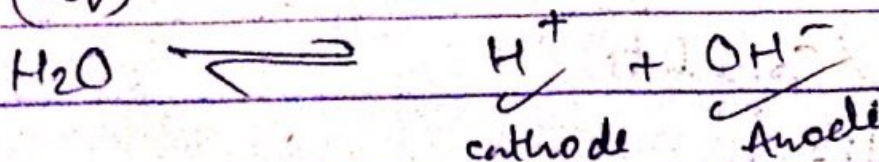 H₂O ⇌ H⁺ + OH⁻
cathode Anode